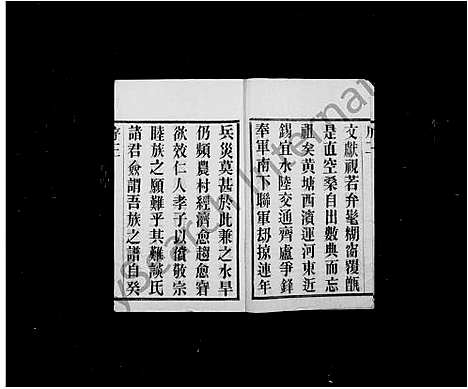 序二
文獻視若弁髦糊窗覆瓿
是直空桑自出數典而忘
祖矣黄塘西濱運河東近
錫宜水陸交通齊盧爭鋒
奉軍南下聯軍劫掠連年
兵災莫甚於此兼之水旱
仍頻農村經濟愈趨愈窘
欲效仁人孝子以敬宗
睦族之願難乎其難談氏
諸君僉謂吾族之譜自癸
序三